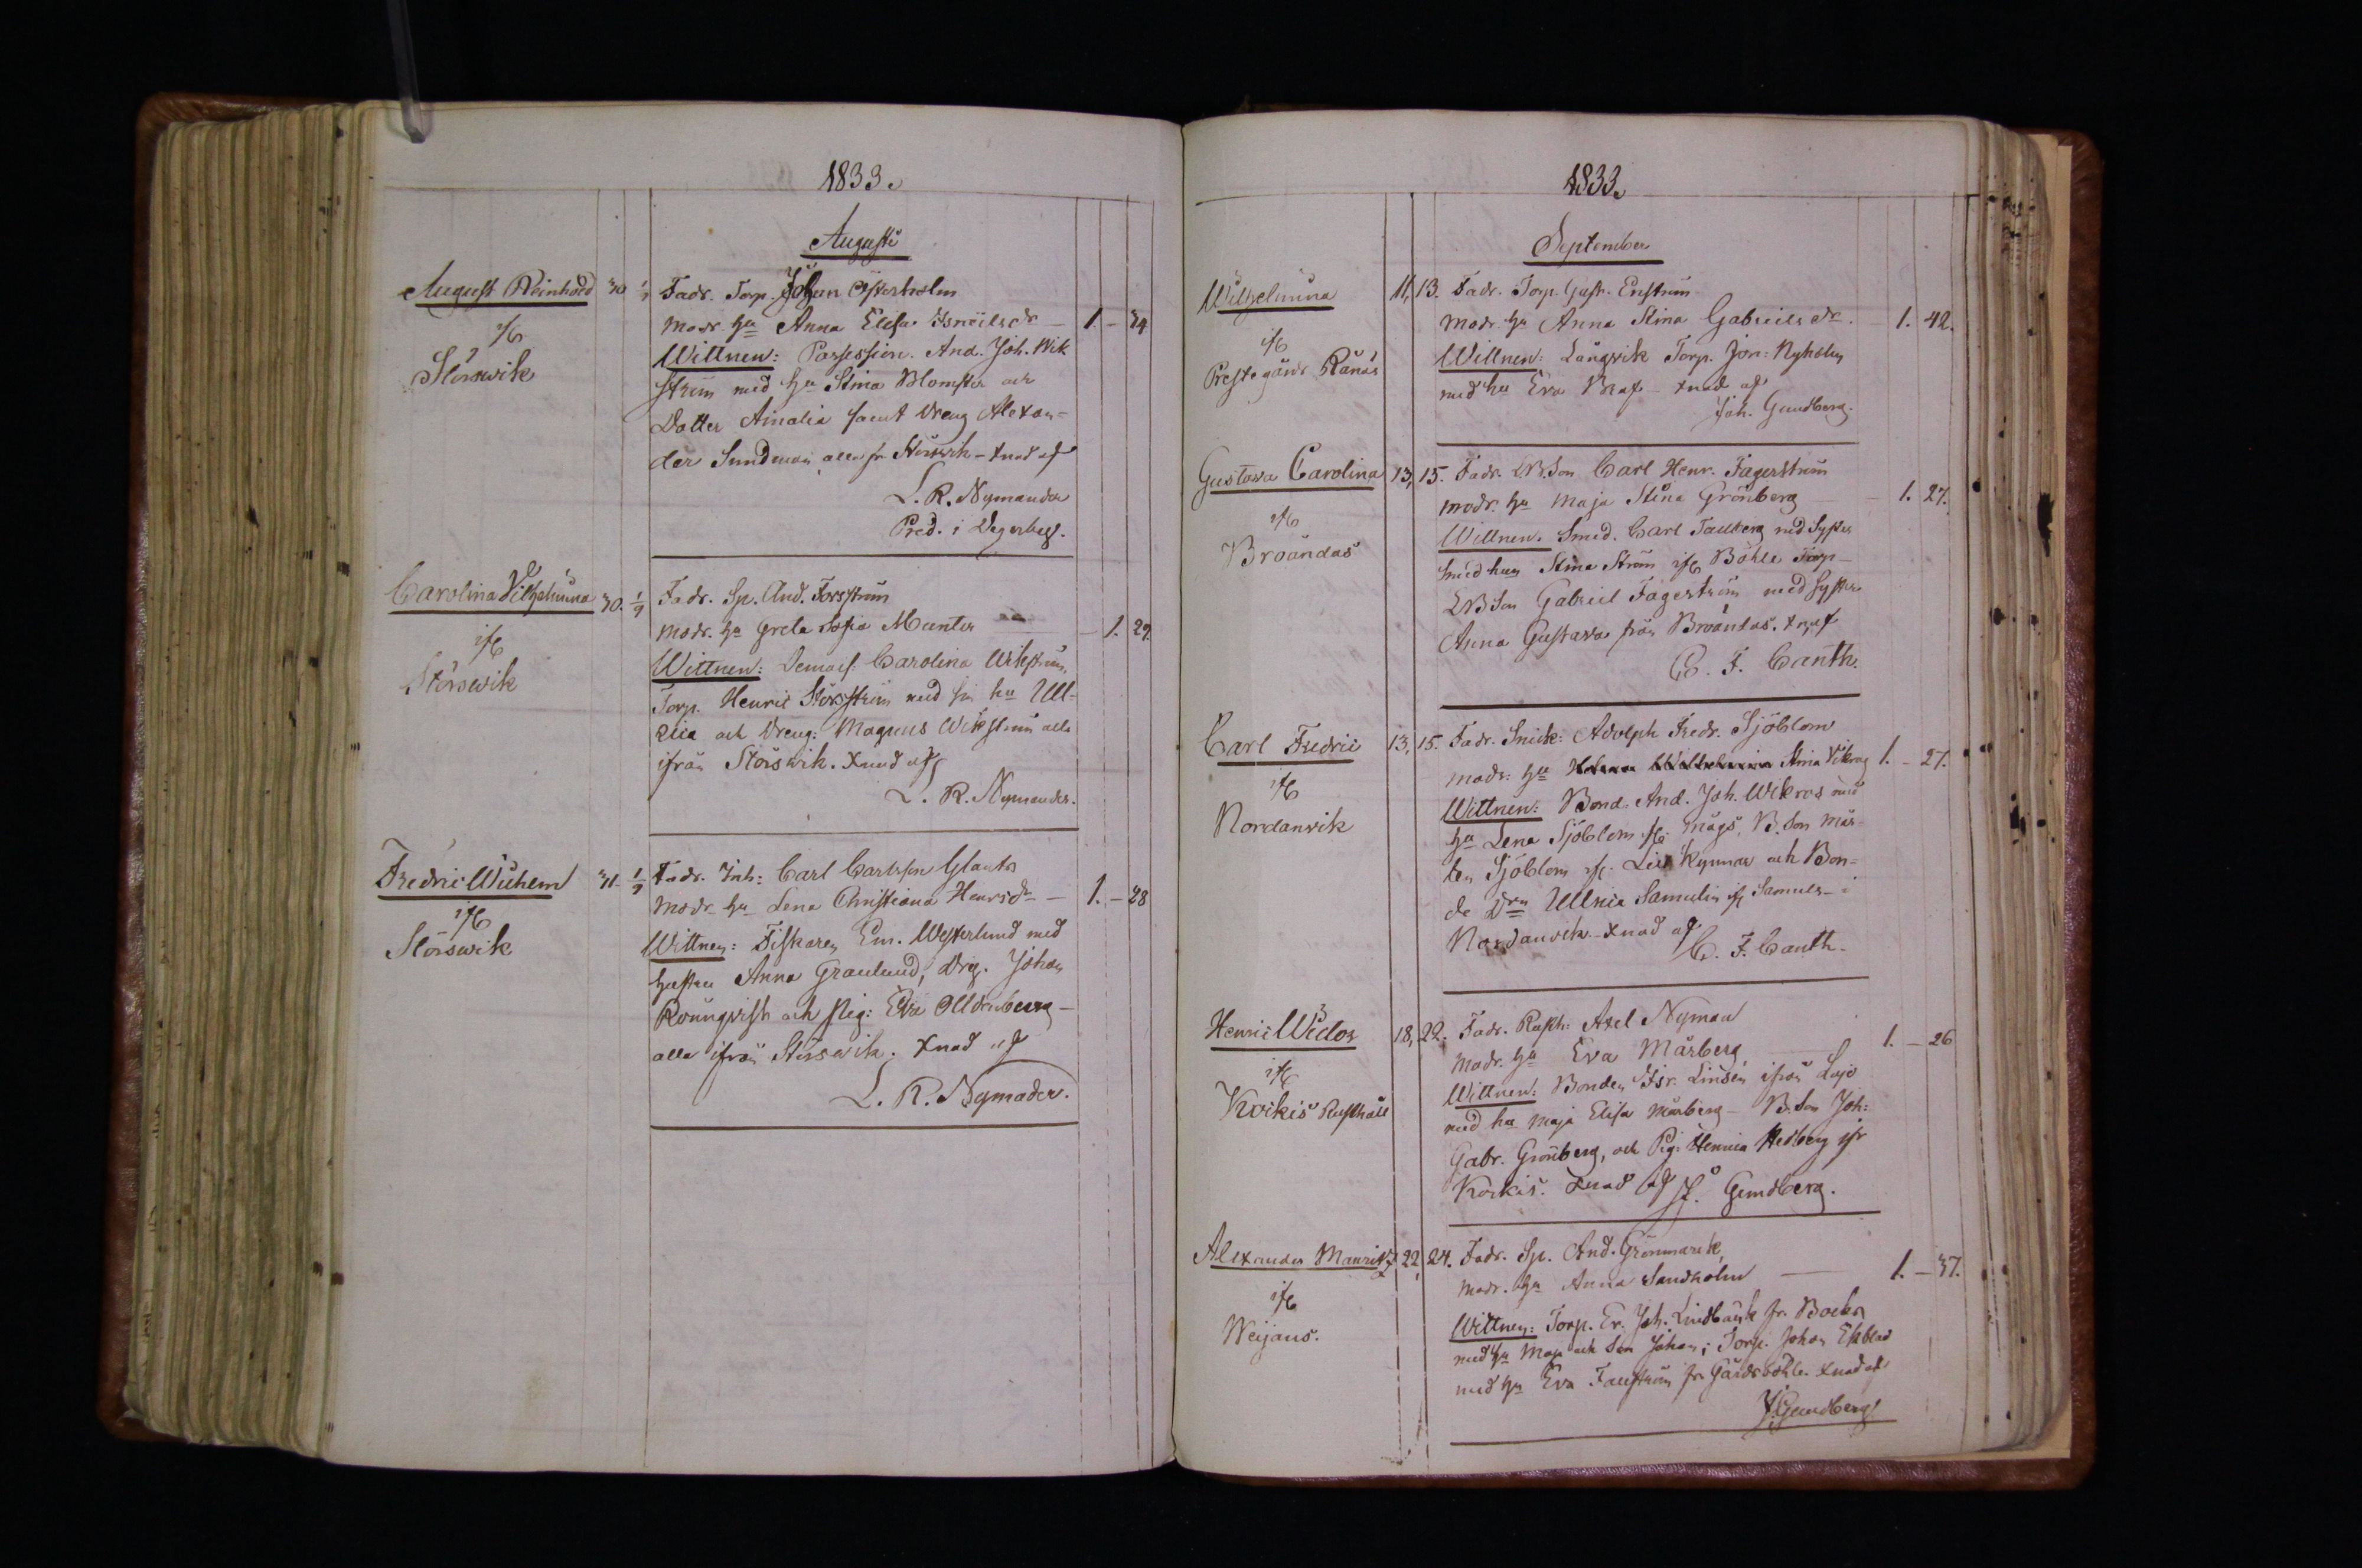 1833.
Augusti
August Reinhold 30 1/9 Fadr. Torp. Johan Österholm
if
Störswik
modr. hu Anna Elisa Israelsdr — 1. — 34
Wittnen: Possession. And. Joh. Wik
ström med hu Stina Blomster och
Dotter Amalia samt Dreng Alexan-
der Sundman alla fr Störswik — Xnad af
L. R. Nymander
Pred. i Degerby.
Carolina Vilhelmina 30. 1/9 Fadr. Sp. And. Forsström
if
Störswik
modr. hu Greta Sofia Munter — 1. 29.
Wittnen: Demois: Carolina Wikström,
Torp. Henric Störsström med sin hu Ull-
rica och Dreng: Magnus Wikström alla
ifrån Störswik. Xnad af
L. R. Nymander.
Fredric Wilhelm 31. 1/9 Fadr. Inh: Carl Carlsson Glants
if
Störswik
Modr hu Lena Christiana Henrsdr — 1. — 28
Wittnen: Fiskaren Em. Westerlund med
hustru Anna Granlund, Drg. Johan
Rönnqvist och Pig: Eva Olldenberg —
alla ifrån Störswik. Xnad af
L. R. Nymader.
1833.
September
Wilhelmina 11, 13. Fadr. Torp. Gust. Enström
if
Prestgårds Rånäs
modr. hu Anna Stina Gabrielsdr. — 1. 42.
Wittnen: Långvik Torp. Jon: Nyholm
med hu Eva — Xnad af
Joh. Gundberg.
Gustava Carolina 13, 15. Fadr. LBSon Carl Henr. Fagerström
if
Broändas
modr. hu Maja Stina Grönberg — 1. 27.
Wittnen. Smed. Carl Tallberg med Syster
Smed hun Stina Ström if Böhle Torp —
LBSon Gabriel Fagerström med Syster
Anna Gustava från Broändas. X af
C. F. Canth.
Carl Fredric 13, 15. Fadr. Snick: Adolph Fredr. Sjöblom
if
Nordanvik
modr: hu Helena Wilhelmina Stina Vikroos 1. — 27.
Wittnen: Bond. And. Joh. Wikros med
hu Lena Sjöblom if Mågs, B. Son Mår-
ten Sjöblom if. Lill Kynnar och Bon-
de Drn Ullrica Samulin if Samuls — i
Nordanvik — Xnad af
C. F. Canth.
Henric Widor 18, 22. Fadr. Rusth: Axel Nyman
if
Korkis Rusthåll
Modr. hu Eva Mårberg 1. — 26
Wittnen: Bonden Isr. Linden ifrån Lojo
med hu Maja Elisa Mårberg — B. Son Joh:
Gabr. Grönberg, och Pig. Henrica Hedberg ifr
Korkis. Xnad af J. Gundberg.
Alexander Mauritz 22, 24. Fadr. Sp. And. Grönmarck,
if
Weijans.
Modr. hu Anna Sandholm — 1. — 37.
Wittnen: Torp. Er. Joh. Lindbäck fr. Backa
med hu Maja och Son Johan; Torp. Johan Ekblad
med hu Eva Fallström fr Gårdsböhle. Xnad af
J. Gundberg